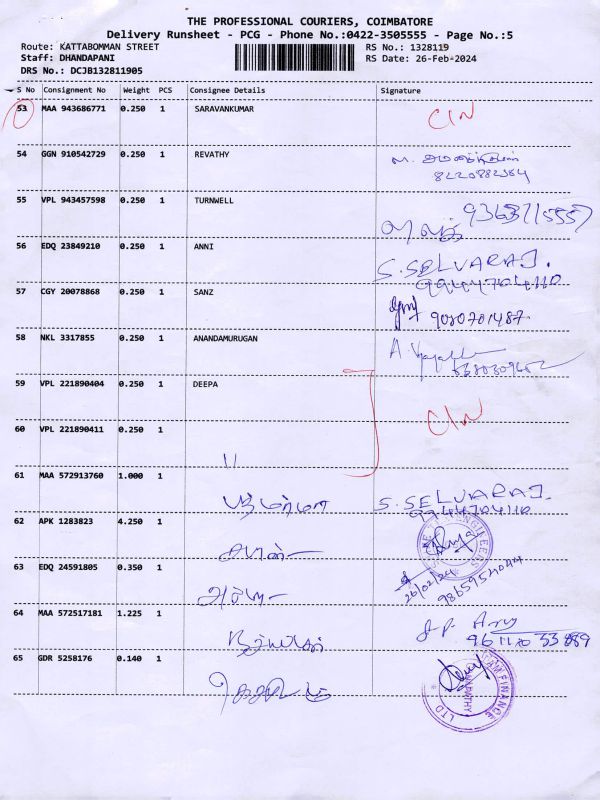 THE PROFESSIONAL COURIERS, COIMBATORE
Delivery Runsheet - PCG - Phone No.:0422-3505555 - Page No.:5
Route: KATTABOMMAN STREET RS No.: 1328119
Staff: DHANDAPANI RS Date: 26-Feb-2024
DRS No.: DCJB132811905
S No Consignment No Weight PCS Consignee Details Signature
53 MAA 943686771 0.250 1 SARAVANKUMAR
54 GGN 910542729 0.250 1 REVATHY
55 VPL 943457598 0.250 1 TURNWELL
56 EDQ 23849210 0.250 1 ANNI S. SELVARAJ.
9944704110
57 CGY 20078868 0.250 1 SANZ
9080701487.
58 NKL 3317855 0.250 1 ANANDAMURUGAN
59 VPL 221890404 0.250 1 DEEPA
60 VPL 221890411 0.250 1
"
61 MAA 572913760 1.000 1 S. SELVARAJ.
9944704110
62 APK 1283823 4.250 1
63 EDQ 24591805 0.350 1
26/02/24
9865954044
64 MAA 572517181 1.225 1
65 GDR 5258176 0.140 1
FINANCE LTD